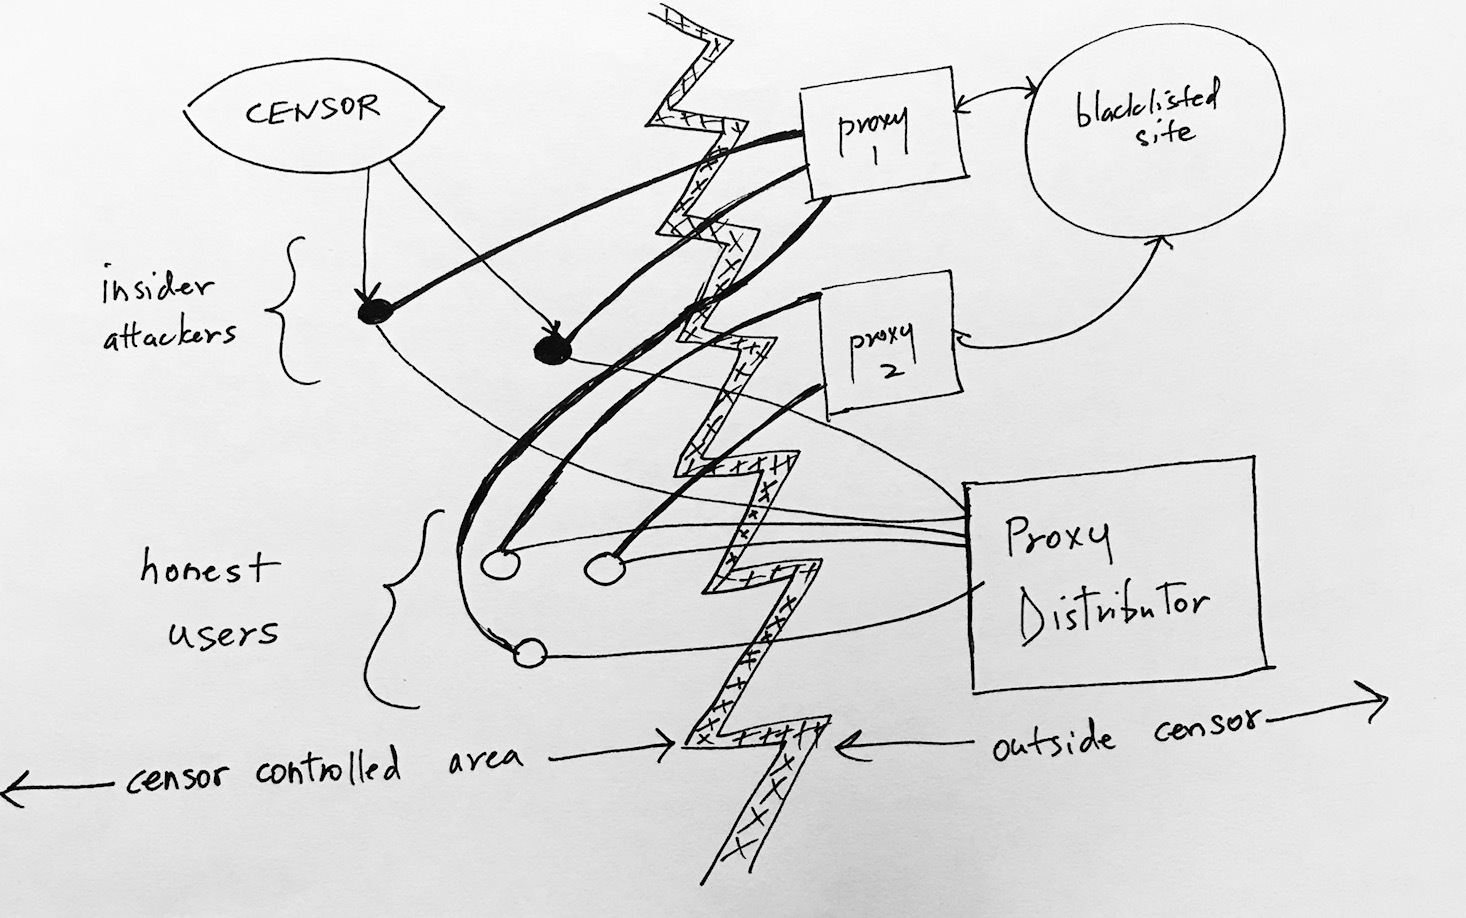 CENSOR
proxy
1
blacklisted
site
insider
attackers
proxy
2
honest
users
Proxy
Distributor
censor controlled area
outside censor